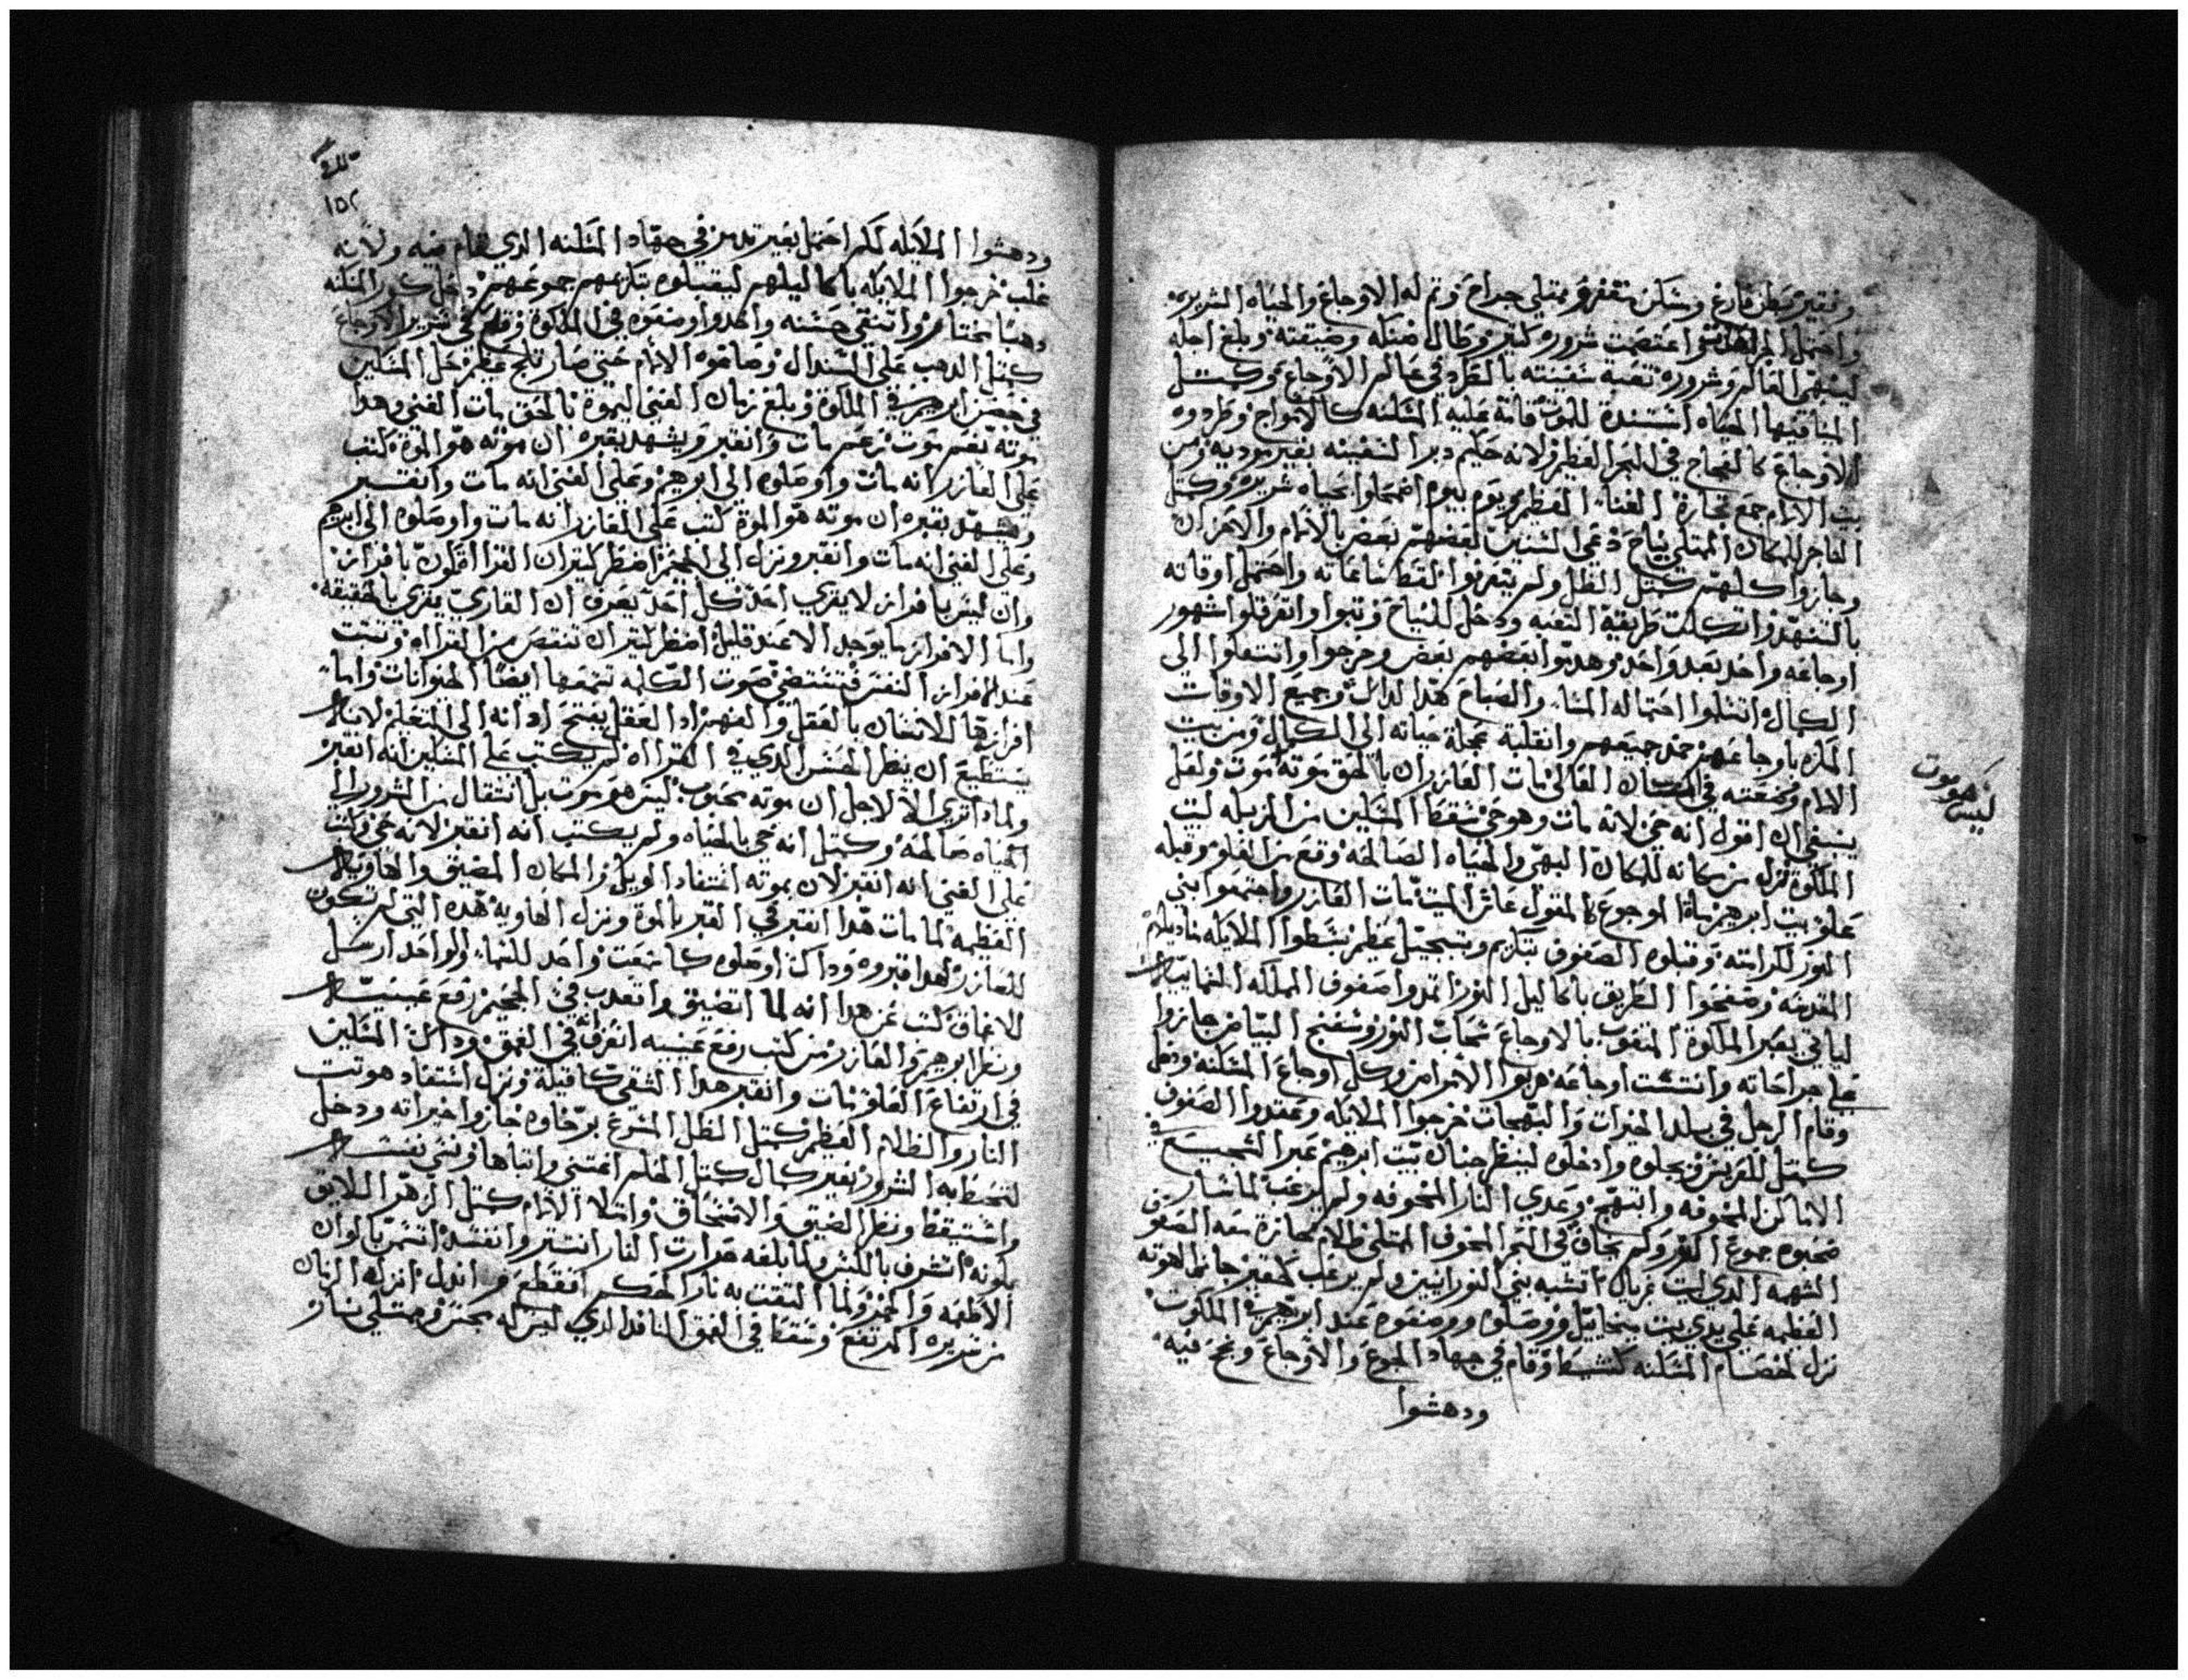 وفقير وبطن فارغ وسكن متقفر وممتلي جراح وتم له الاوجاع والحياه الشريره
واحتمل شروره كتير وطال ضنكه وضيقته وبلغ اجله
لينتهي العالم وشروره تعبة سفينته بالطرد في عالم الاوجاع وكمتل
المينا قبلها الحياه اشتندة للموت قامة عليه المسكنه كالامواج وطردوه
الاوجاع كالعجاج في البحر العظيم ولانه حكيم دبر السفينه بغير مودية ومن
بيت الالام جمع تجارة الغناء العظيم ويوم بيوم اضمحلوا بحياه شريره وكتل
الفاجر للمكان الممتلي نياح دعي لسنين بعضهم بعض بالالام والاحزان
وجازوا كلهم كمتل الظل ولم يتعزوا لقط ساعاته واحتمل اوقاته
بالتنهد واتكملت طريقة التعبه ودخل للنياح وتبوا واتفرقلوا شهور
اوجاعه واحد بعد واحد وهدوا بعضهم بعض وخرجوا وانتقلوا الي
الكمال اتسلموا احتماله المساء والصباح هدا لداك وجميع الاوقات
المازه باوجاعهم جميعهم وانقلبة عجلة حياته الي الكمال ومن بيت
الالام وضعته في المكان العالي مات العازر ان بالحق موته موت ولعل
ينبغي ان اقول انه حي لانه مات وهو حي سقط المسكين من المزبله لبيت
الملكوة نزل من مكانه للمكان البهي والحياه الصالحه وقع من العلو وقبله
علو بيت ابرهيم الموجوع كالمقول عاش الميت مات العازر واجتمعوا بني
النور لكرامته وقبلوه الصفوف بتكريم وتبجيل عظيم نشطوا الملايكه
المقدسه وصفحوا الطريق باكاليل النور اتمدوا صفوف المملكه السمائيه
لياتي بعبر الملكوة المتعوب بالاوجاع سحاب النور وسفنج البياض جازوا
علي جراحاته وانتست اوجاعه هربوا الامراض وكل اوجاع المسكنه ودخل
وقام الرجل في بلد الخيرات والبهجات خرجوا الملايكه وعقدوا الصفوف
كمتل للعريس يجلوه وادخلوه لينظر جنان بيت ابرهيم عبر الشجيع في
الاماكن المخوفه وابتهج وعدي النار المخوفه ولم يرعب لما سار
صحبوه جموع النور ولم يخاف في البحر المخوف الممتلي ظلام مجازة معه الصفوف
الشهيه الدي لبيت غبريال اتشبه ببني النورانيين ولم يرعب لعبر جانحا لهوته
العظيمه علي يدي بيت ميخاييل ووصلوه ووضعوه عند ابرهيم في الملكوت
نزل لخصام المسكنه كنشيط وقام في جهاد الجوع والاوجاع ونجح فيه
ودهشوا
ليس هو موت
١٥٢
ودهشوا الملايكه لكم احتمل بغير تدمر في جهاد المسكنه الدي قام فيه ولانه
غلب خرجوا الملايكه باكاليلهم ليقبلوه بتكريمهم جموعهم دخل كور المسكنه
دهبا مختار واتنقي حسنه واخدوا وضعوه في الملكوة وقلع في شرير الاوجاع
كمتل الدهب علي السندال وصاغوه الالام حتي صار تاج عظيم حل المسكين
في حضن ابرهيم في الملكوة وبلغ زمان الغني ليموة بالحق مات الغني وهدا
موته بغير موت نزعم مات وانقبر ويشهد بقبره ان موته هو الموة كتب
علي العازر انه مات واوصلوه الي ابرهيم وعلي الغني انه مات وانقبر
ويشهد بقبره ان موته هو الموة كتب علي العازر انه مات واوصلوه الي ابرهيم
وعلي الغني انه مات وانقبر ونزل الي الجحيم انظر كيتر ان القرا اقلون بافراز
وان ليس بافراز لا يقري احد كل احد يعرف ان القاري يقري بالحقيقه
واما الافراز ما يوجد الا عند قليل انظر كيتر ان تنتصر من القراه وتبت
عند الافراز النفس فتنتضي صوت الكلمه تسمعها ايضا الحيوانات واما
افرازها للانسان بالعقل والفهم ادا العقل يفتح ادانه الي التعليم
يستطيع ان ينظر الحسن الدي في القراه لم يكتب علي المسكين انه انقبر
ولماداتري الا لاجل ان موته محبوب ليس هو موت بل انتقال من الشرور الي
الحياه صالحه وكمتل انه حي بالحياه ولم يكتب انه انقبر لانه حي وكتب
علي الغني انه انقبر لان بموته استفاد الويل والمكان المضيق والهاويه
العظيمه لما مات هدا انقبر في القبر بالموة ونزل الهاويه هده التي لم تكون
للعازر لهدا قبروه وداك اوصلوه كما سمعت واحد للسماء والواحد ارسل
للاعماق كتب عن هدا انه لما اتضيق واتعدب في الجحيم رفع عينيه
ونظر ابرهيم والعازر ومن كتب رفع عينيه اتعرف في العمق وداك المسكين
في ارتفاع العلو مات وانقبر هدا الشقي كما قيلة ونزل استفاد هوتت
النار والظلام العظيم كمتل الظل المسرع برخاوه جازوا خيراته ودخل
لتحيط به الشرور بغير كمال كمتل الحلم اغتني واتباها ونسي نفسه
واستيقظ ونظر الضيق والانسحاق وامتلا الالام كمتل الزهر اللايق
بلونه اتشرف باللبس ولما بلغه حرارت النار انستر وانفسد اتنعم بالوان
الاطعمه والخمر ولما التقت به نار الحكم انقطع وانديل انزله الزمان
من سريره المرتفع وسقط في العمق النافد الدي ليس له مجس وممتلي نار